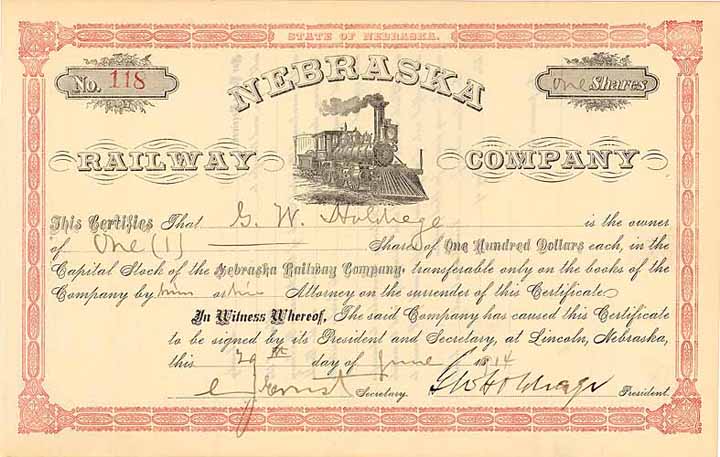 STATE OF NEBRASKA.
No. 118
one Shares
NEBRASKA
RAILWAY COMPANY
This Certifies That G. W. Holdrege is the owner
of One (1) Shares of One Hundred Dollars each, in the
Capital Stock of the Nebraska Railway Company, transferable only on the books of the
Company by him or his Attorney on the surrender of this Certificate
In Witness Whereof, The said Company has caused this Certificate
to be signed by its President and Secretary, at Lincoln, Nebraska,
this 29th day of June 14
Secretary. G W Holdrege President.